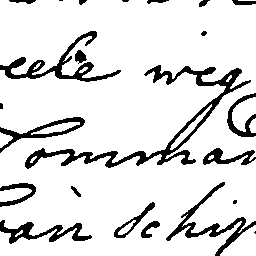 veele weg
Comman
van schip